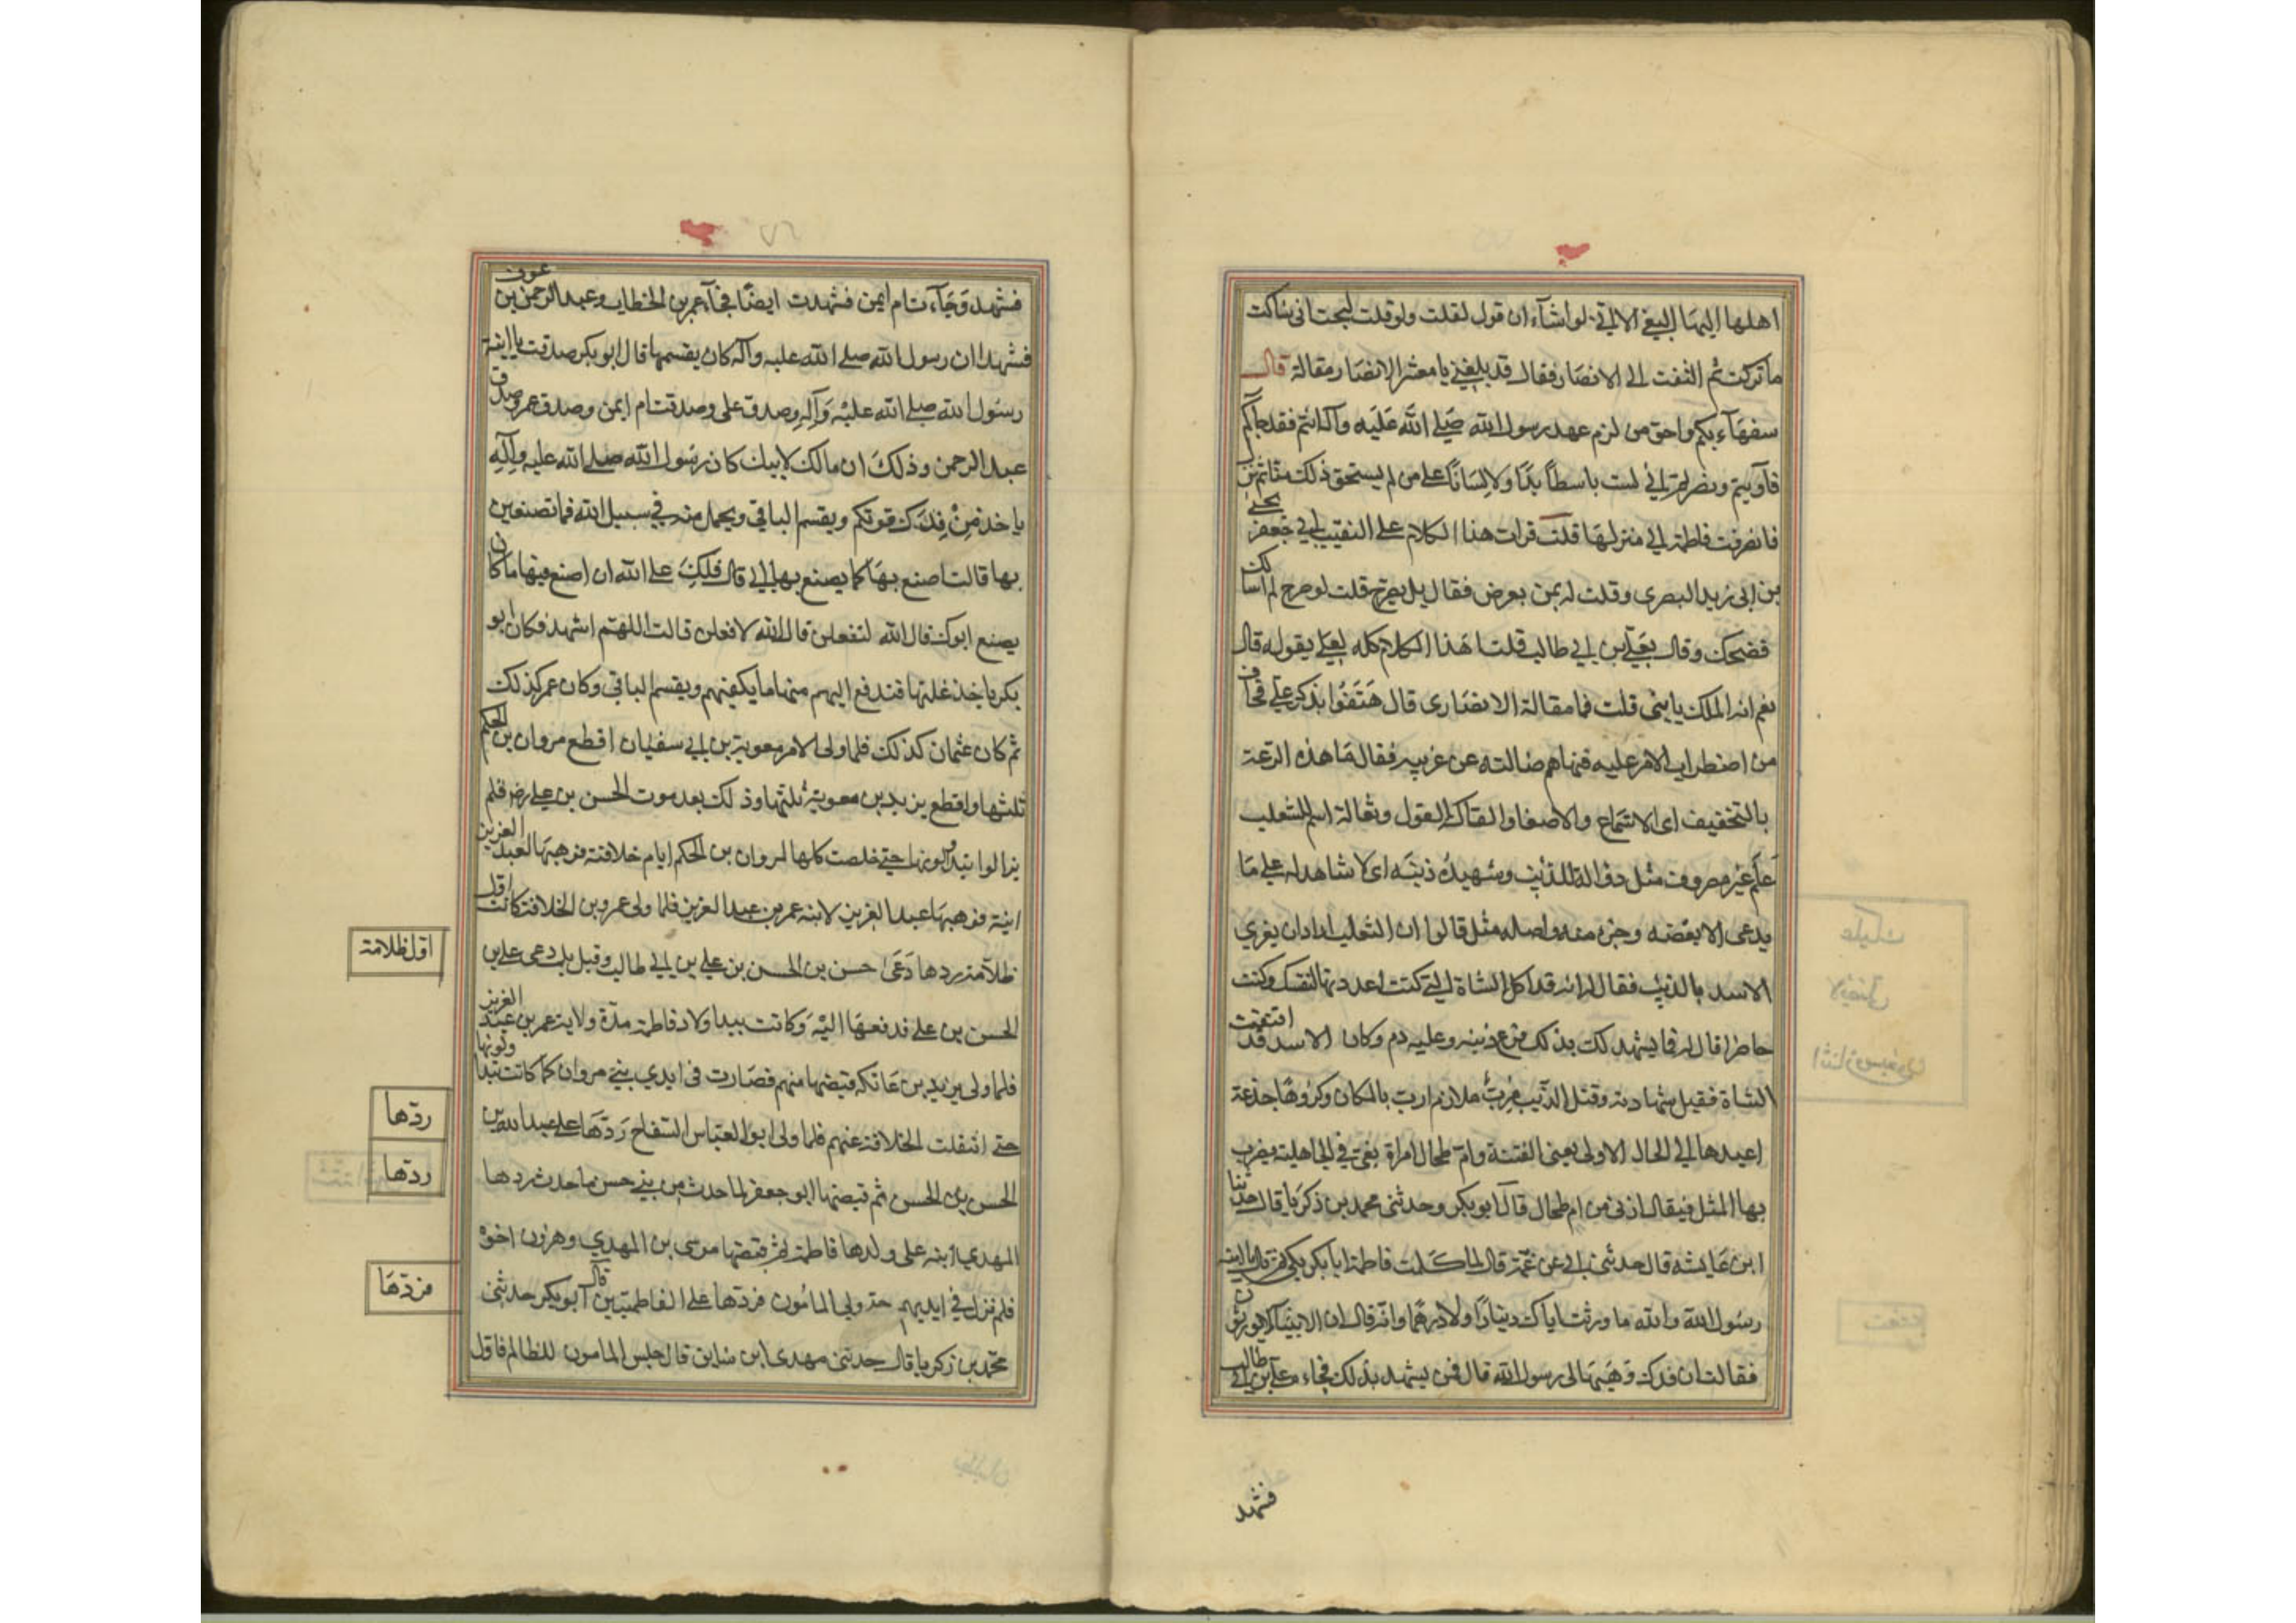 اهلها اليها البغي الا اني لو اشآء ان قول لقلت ولو قلت لبحت انى ساكت
ما تركت ثم التفت الى الانصار فقال قد بلغني يا معشر الانصار مقالة قال
سفهآء بكم واحق من لزم عهد رسول الله صلى الله عليه وآله انتم فقد جآكم
فآويتم ونصرتم الي لست باسطاً يدًا ولا لسانًا على من لم يستحق ذلك منا ثم نزل
فانصرفت فاطمة الى منزلها قلت قرات هذا الكلام على النقيب ابي جعفر يحيى
بن ابي زيد البصرى وقلت له بمن يعرض فقال بل يصرح قلت لو صرح لم اسالك
فضحك وقال بعلي بن ابي طالب قلت هذا الكلام كله لعلي يقوله قال
نعم انه الملك يا بني قلت فما مقالة الانصارى قال هتفوا بذكر علي فخاف
من اضطراب الامر عليه فنهاهم فسالته عن غريبه فقال ما هذه الرعة
بالتخفيف اى الاستماع والاصغا والقالة القول وثعالة اسم الثعلب
علم غير مصروف مثل ذوالة للذئب وشهيده ذنبه اى لا شاهد له على ما
يدعى الا بعضه وجزء منه واصله مثل قالوا ان الثعلب اراد ان يغري
الاسد بالذئب فقال له انه قد اكل الشاة التي كنت اعددتها لنفسك وكنت
حاضرا قال فمن يشهد لك بذلك فرفع ذنبه وعليه دم وكان الاسد قد افتقدت
الشاة فقبل شهادته وقتل الذئب مرب ملازم ارب بالمكان وكروها جذعة
اعيدها الى الحال الاولى يعنى الفتنة وام طحال امراة بغي في الجاهلية يضرب
بها المثل فيقال ازنى من ام طحال قال ابو بكر وحدثنى محمد بن ذكريا قال حدثنا
ابن عايشه قال حدثنى ابي عن عمه قال لما كلمت فاطمة ابا بكر بكى ثم قال يا ابنة
رسول الله والله ما ورث اباك دينارًا ولا درهمًا وانه قال ان الانبيآء لا يورثون
فقالت ان فدك وهبها لى رسول الله قال فمن يشهد بذلك فجاء علي بن ابي طالب
فشهد
٧٦
فشهد وجآءت ام ايمن فشهدت ايضًا فجآء عمر بن الخطاب وعبد الرحمن بن عوف
فشهدا ان رسول الله صلى الله عليه وآله كان يقسمها قال ابو بكر صدقت يا ابنة
رسول الله صلى الله عليه وآله وصدق على وصدقت ام ايمن وصدق عمر وصدق
عبد الرحمن وذلك ان مالك لابيك كان رسول الله صلى الله عليه وآله
ياخذ من فدك قوتكم ويقسم الباقي ويحمل منه في سبيل الله فما تصنعين
بها قالت اصنع بها كما يصنع بها ابي قال فلك على الله ان اصنع فيها ما كان
يصنع ابوك فقال الله لتفعلن قال الله لافعلن قالت اللهم اشهد فكان ابو
بكر ياخذ غلتها فتدفع اليهم منها ما يكفيهم ويقسم الباقي وكان عمر كذلك
ثم كان عثمان كذلك فلما ولى الامر معوية بن ابي سفيان اقطع مروان بن الحكم
ثلثها واقطع يزيد بن معوية ثلثها وذلك بعد موت الحسن بن علي رض فلم
يزالوا يتداولونها حتى خلصت كلها لمروان بن الحكم ايام خلافته فوهبها لعبد العزيز
ابنه فوهبها عبد العزيز لابنه عمر بن عبد العزيز فلما ولى عمر بن الخلافة كانت اول
ظلامة ردها دعى حسن بن الحسن بن علي بن ابي طالب وقيل بل دعى علي بن
الحسن بن على فدفعها اليه وكانت بيد اولاد فاطمة مدة ولاية عمر بن عبد العزيز
فلما ولى يزيد بن عاتكه قبضها منهم فصارت فى ايدي بني مروان كما كانت يتداولونها
حتى انتقلت الخلافة عنهم فلما ولى ابو العباس السفاح ردها على عبد الله بن
الحسن بن الحسن ثم قبضها ابو جعفر لما حدث من بني حسن ما حدث ردها
المهدي ابنه على ولدها فاطمة ثم قبضها موسى بن المهدي وهرون اخوه
فلم تزل في ايديهم حتى ولي المامون فردها على الفاطميين قال ابو بكر حدثنى
محمد بن زكريا قال حدثنى مهدى ابن سابق قال جلس المامون للظالم فاول
اول ظلامة
ردها
ردها
فردها